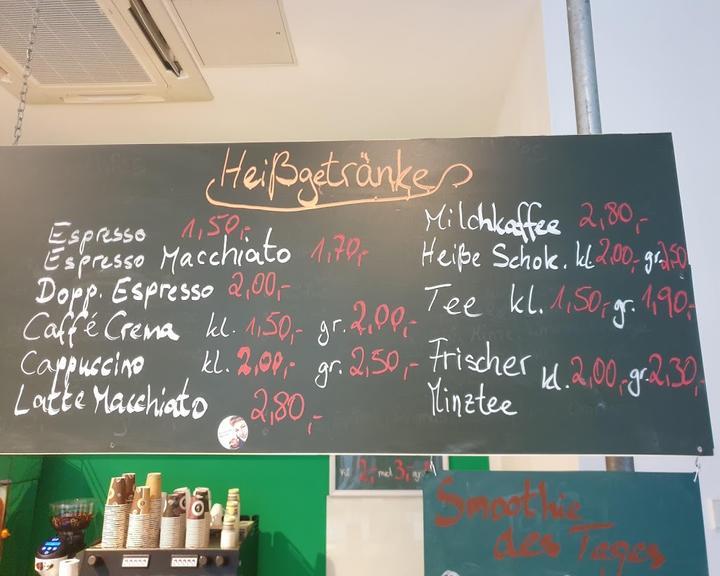 Heißgetränke
Espresso 1,50,-
Espresso Macchiato 1,70,-
Dopp. Espresso 2,00,-
Caffé Crema kl. 1,50,- gr. 2,00,-
Cappuccino kl. 2,00,- gr. 2,50,-
Latte Macchiato 2,80,-
Milchkaffee 2,80,-
Heiße Schok. kl. 2,00,- gr. 2,50
Tee kl. 1,50,- gr. 1,90,-
Frischer Minztee kl. 2,00,- gr. 2,30,-
2,- med 3,-
Smoothie
des Tages